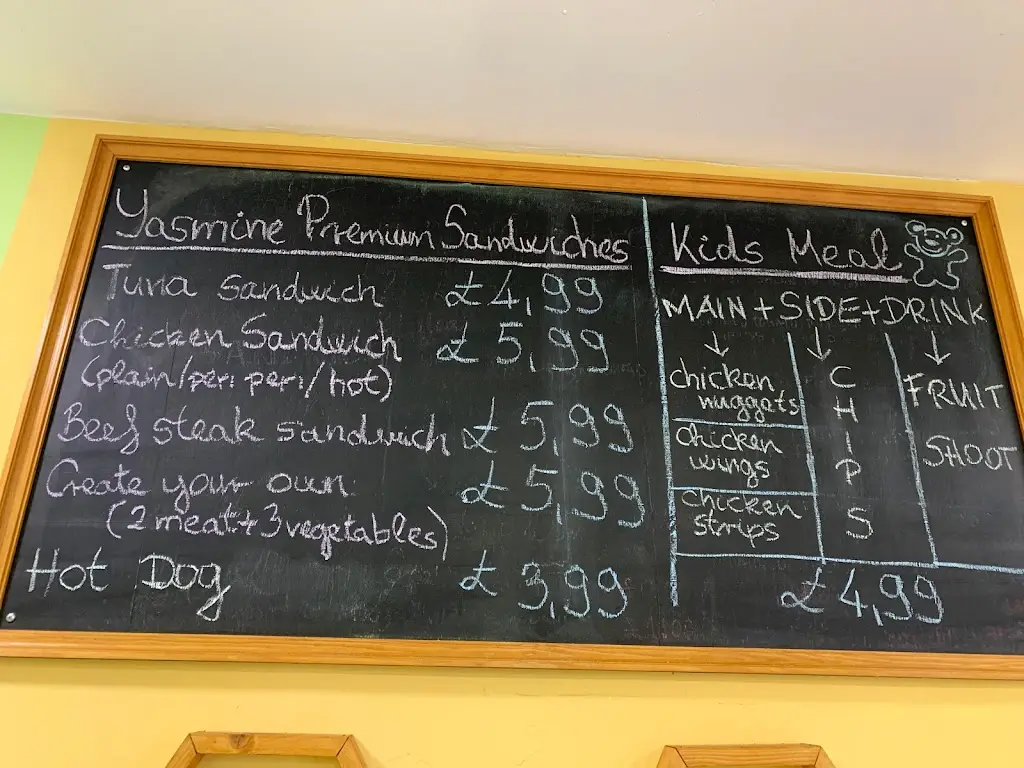 Yasmine Premium Sandwiches
Tuna sandwich £4,99
Chicken Sandwich £5,99
(plain/peri peri/hot)
Beef steak sandwich £5,99
Create your own: £5,99
(2 meat + 3 vegetables)
Hot Dog £3,99
Kids Meal
MAIN + SIDE + DRINK
chicken
nuggets
chicken
wings
chicken
strips
CHIPS
FRUIT
SHOOT
£4,99